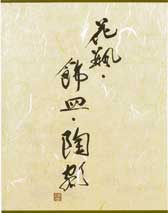 花瓶・
飾皿・陶額